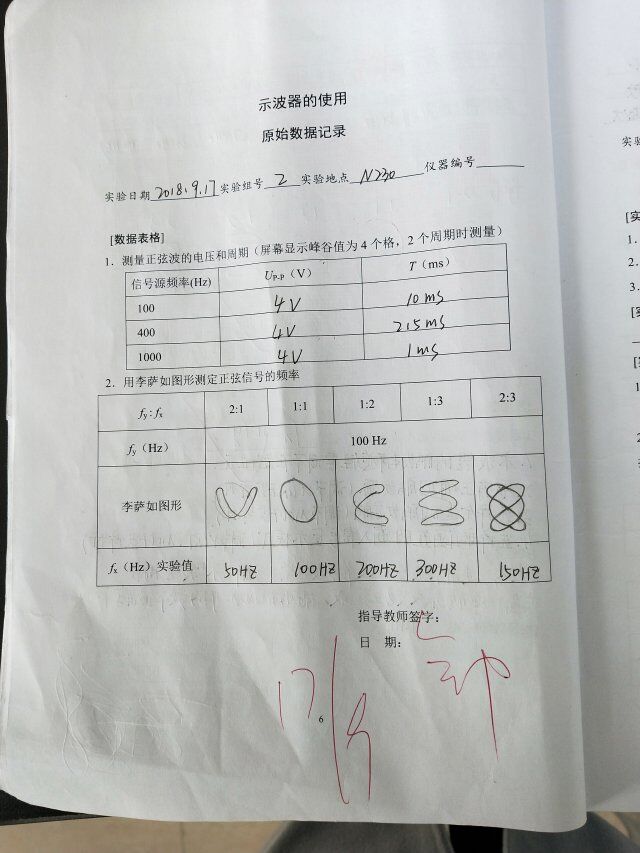 示波器的使用
原始数据记录
实验日期 2018.9.17 实验组号 2 实验地点 N230 仪器编号
[数据表格]
1. 测量正弦波的电压和周期（屏幕显示峰谷值为 4 个格，2 个周期时测量）
信号源频率(Hz) UP-P（V） T（ms）
100 4V 10ms
400 4V 2.5ms
1000 4V 1ms
2. 用李萨如图形测定正弦信号的频率
fy : fx 2:1 1:1 1:2 1:3 2:3
fy（Hz） 100 Hz
李萨如图形
fx（Hz）实验值 50HZ 100HZ 200HZ 300HZ 150HZ
指导教师签字：
日 期：
17/9
6